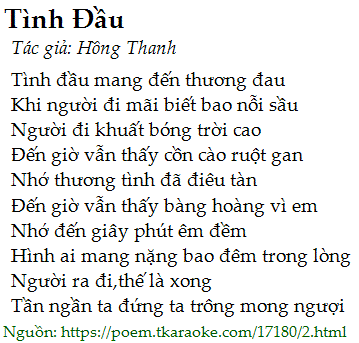 Tình Đầu
Tác giả: Hồng Thanh
Tình đầu mang đến thương đau
Khi người đi mãi biết bao nỗi sầu
Người đi khuất bóng trời cao
Đến giờ vẫn thấy cồn cào ruột gan
Nhớ thương tình đã điêu tàn
Đến giờ vẫn thấy bàng hoàng vì em
Nhớ đến giây phút êm đềm
Hình ai mang nặng bao đêm trong lòng
Người ra đi,thế là xong
Tần ngần ta đứng ta trông mong người
Nguồn: https://poem.tkaraoke.com/17180/2.html